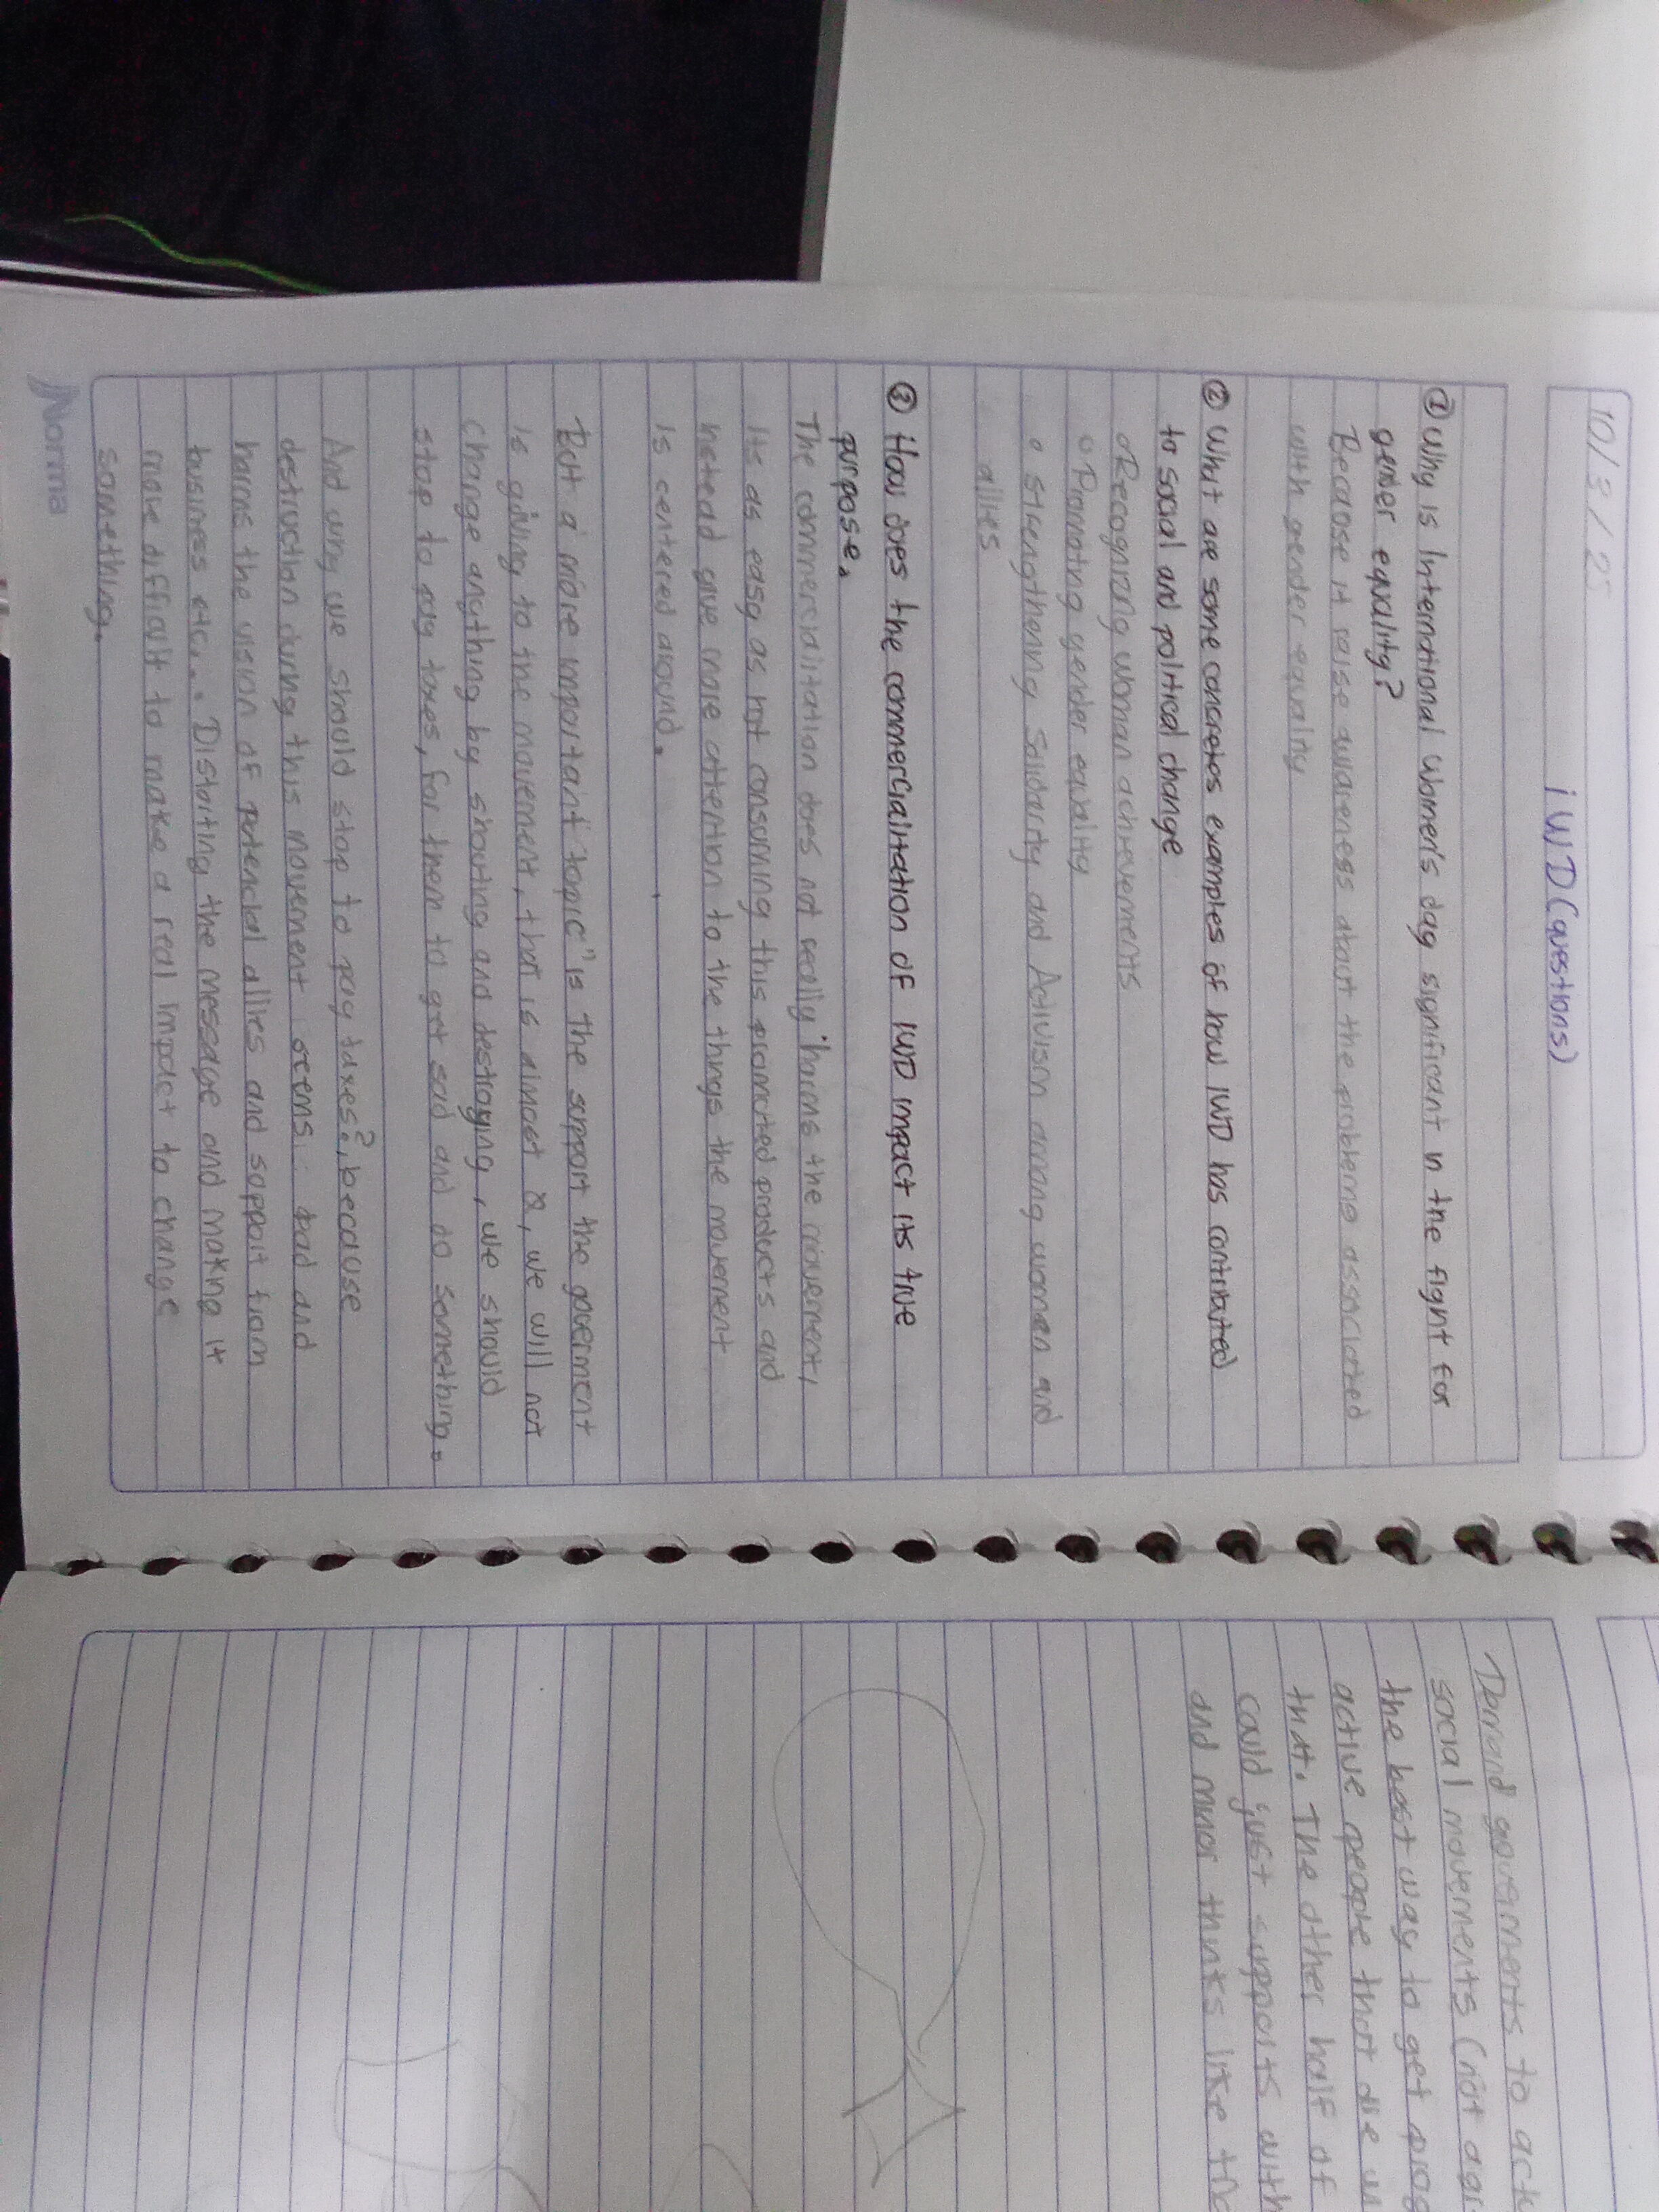 10/3/25
iWD (questions)
① Why is International Women's day significant in the fight for
gender equality?
Because it raise awareness about the problems associated
with gender equality
② What are some concretes examples of how IWD has contributed
to social and political change
o Recognizing woman achievements
o Promoting gender equality
o Strengthening Solidarity and Activism among women and
allies
③ How does the commercialitation of IWD impact its true
purpose.
The commercialitation does not really "harms the movement,
its as easy as not consuming this promoted products and
instead give more attention to the things the movement
is centered around.
But a "more important "topic" is the support the goverment
is giving to the movement, that is almost 0, we will not
change anything by shouting and destroying, we should
stop to pay taxes, for them to get sad and do something.
And why we should stop to pay taxes?, because
destruction during this movement seems bad and
harms the vision of potencial allies and support from
business etc... Distorting the message and making it
more difficult to make a real impact to change
something.
Norma
Demand goverments to act
social movements (not
the best way to get
active people that die
that. The other half of
could just supports with
and minor things like